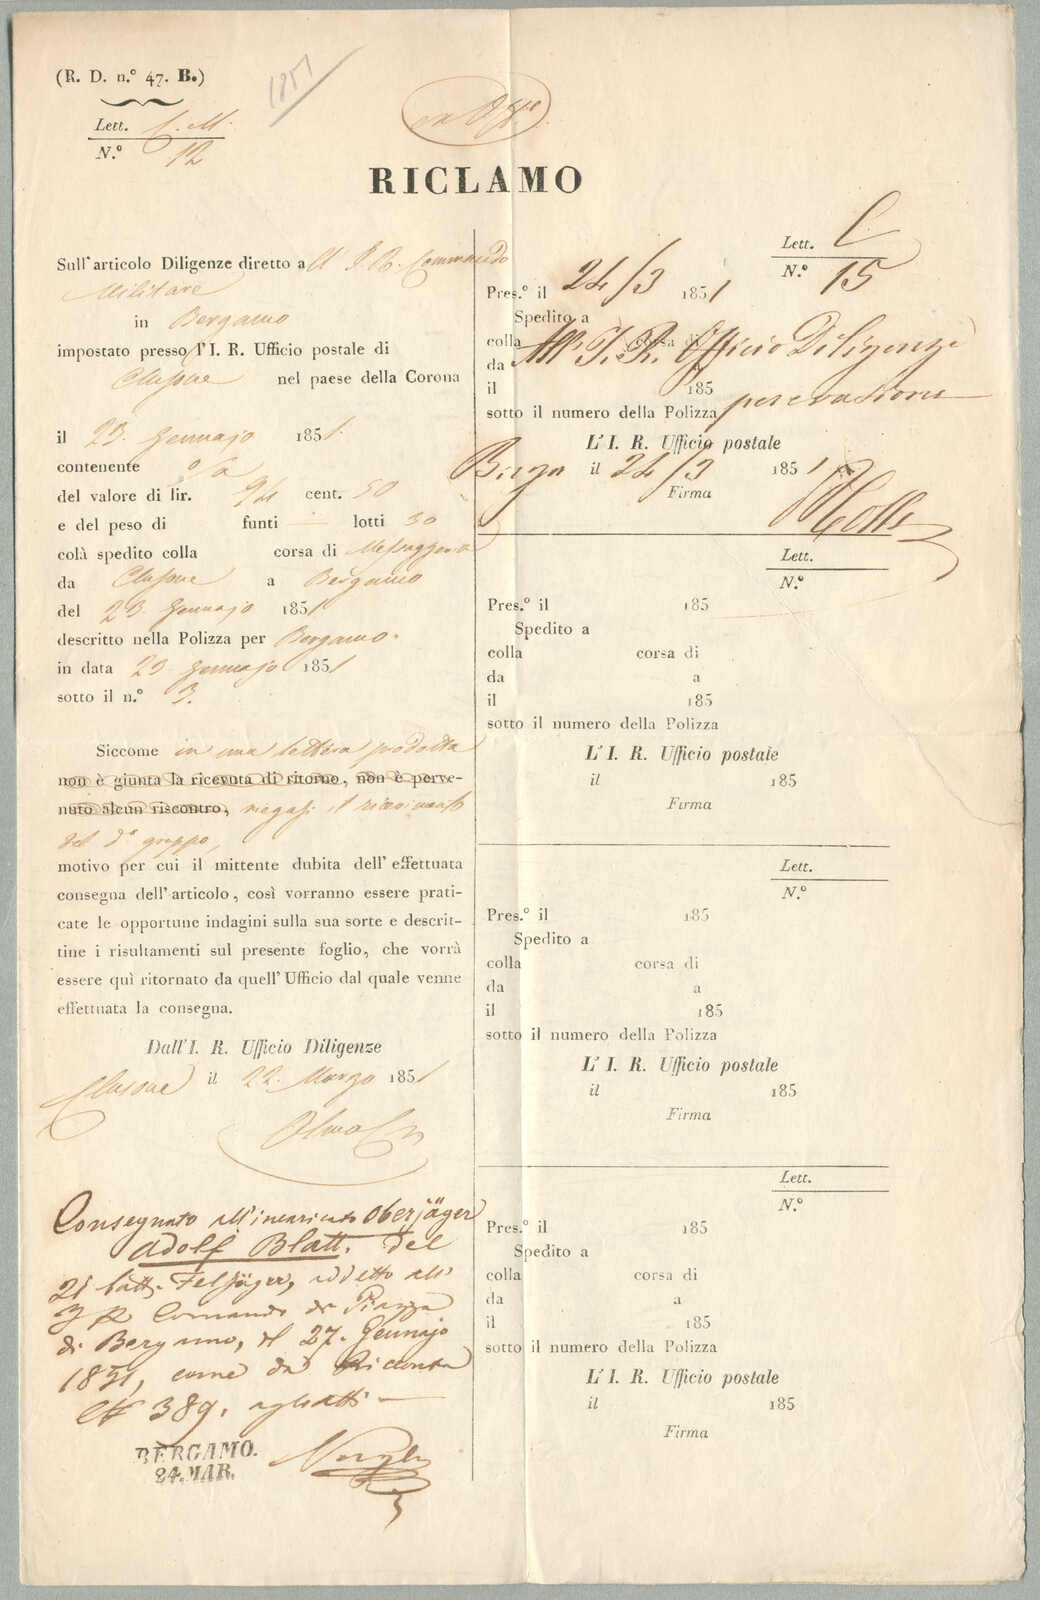 (R. D. n.º 47. B.)
1851
Lett. C. M.
N.º 12
RICLAMO
Sull'articolo Diligenze diretto all I. R. Commando
Militare
in Bergamo
impostato presso l'I. R. Ufficio postale di
Clusone nel paese della Corona
il 23. Gennajo 1851.
contenente
del valore di lir. 94 cent. 50
e del peso di funti — lotti 30
colà spedito colla corsa di Messaggeria
da Clusone a Bergamo
del 23 Gennajo 1851
descritto nella Polizza per Bergamo.
in data 23 Gennajo 1851
sotto il n.º 3.
Siccome in una lettera prodotta
non è giunta la ricevuta di ritorno, non è perve-
nuto alcun riscontro, negasi il ricevimento
del dº gruppo,
motivo per cui il mittente dubita dell'effettuata
consegna dell'articolo, così vorranno essere prati-
cate le opportune indagini sulla sua sorte e descrit-
tine i risultamenti sul presente foglio, che vorrà
essere quì ritornato da quell'Ufficio dal quale venne
effettuata la consegna.
Dall'I. R. Ufficio Diligenze
Clusone il 22. Marzo 1851
Consegnato all'incaricato Oberjäger
Adolf Blatt. del
21 batt. Feljäger, addetto all'
I R Comando di Piazza
di Bergamo, il 27. Gennajo
1851, come da Ricevuta
Nº 389. agli atti —
BERGAMO.
24. MAR.
Lett. C
N.º 15
Pres.º il 24/3 1851
Spedito a
colla corsa di
All' I. R. Officio Diligenze
da a
il 185
sotto il numero della Polizza per evasione
L'I. R. Ufficio postale
Bergº il 24/3 1851
Firma
Lett.
N.º
Pres.º il 185
Spedito a
colla corsa di
da a
il 185
sotto il numero della Polizza
L'I. R. Ufficio postale
il 185
Firma
Lett.
N.º
Pres.º il 185
Spedito a
colla corsa di
da a
il 185
sotto il numero della Polizza
L'I. R. Ufficio postale
il 185
Firma
Lett.
N.º
Pres.º il 185
Spedito a
colla corsa di
da a
il 185
sotto il numero della Polizza
L'I. R. Ufficio postale
il 185
Firma